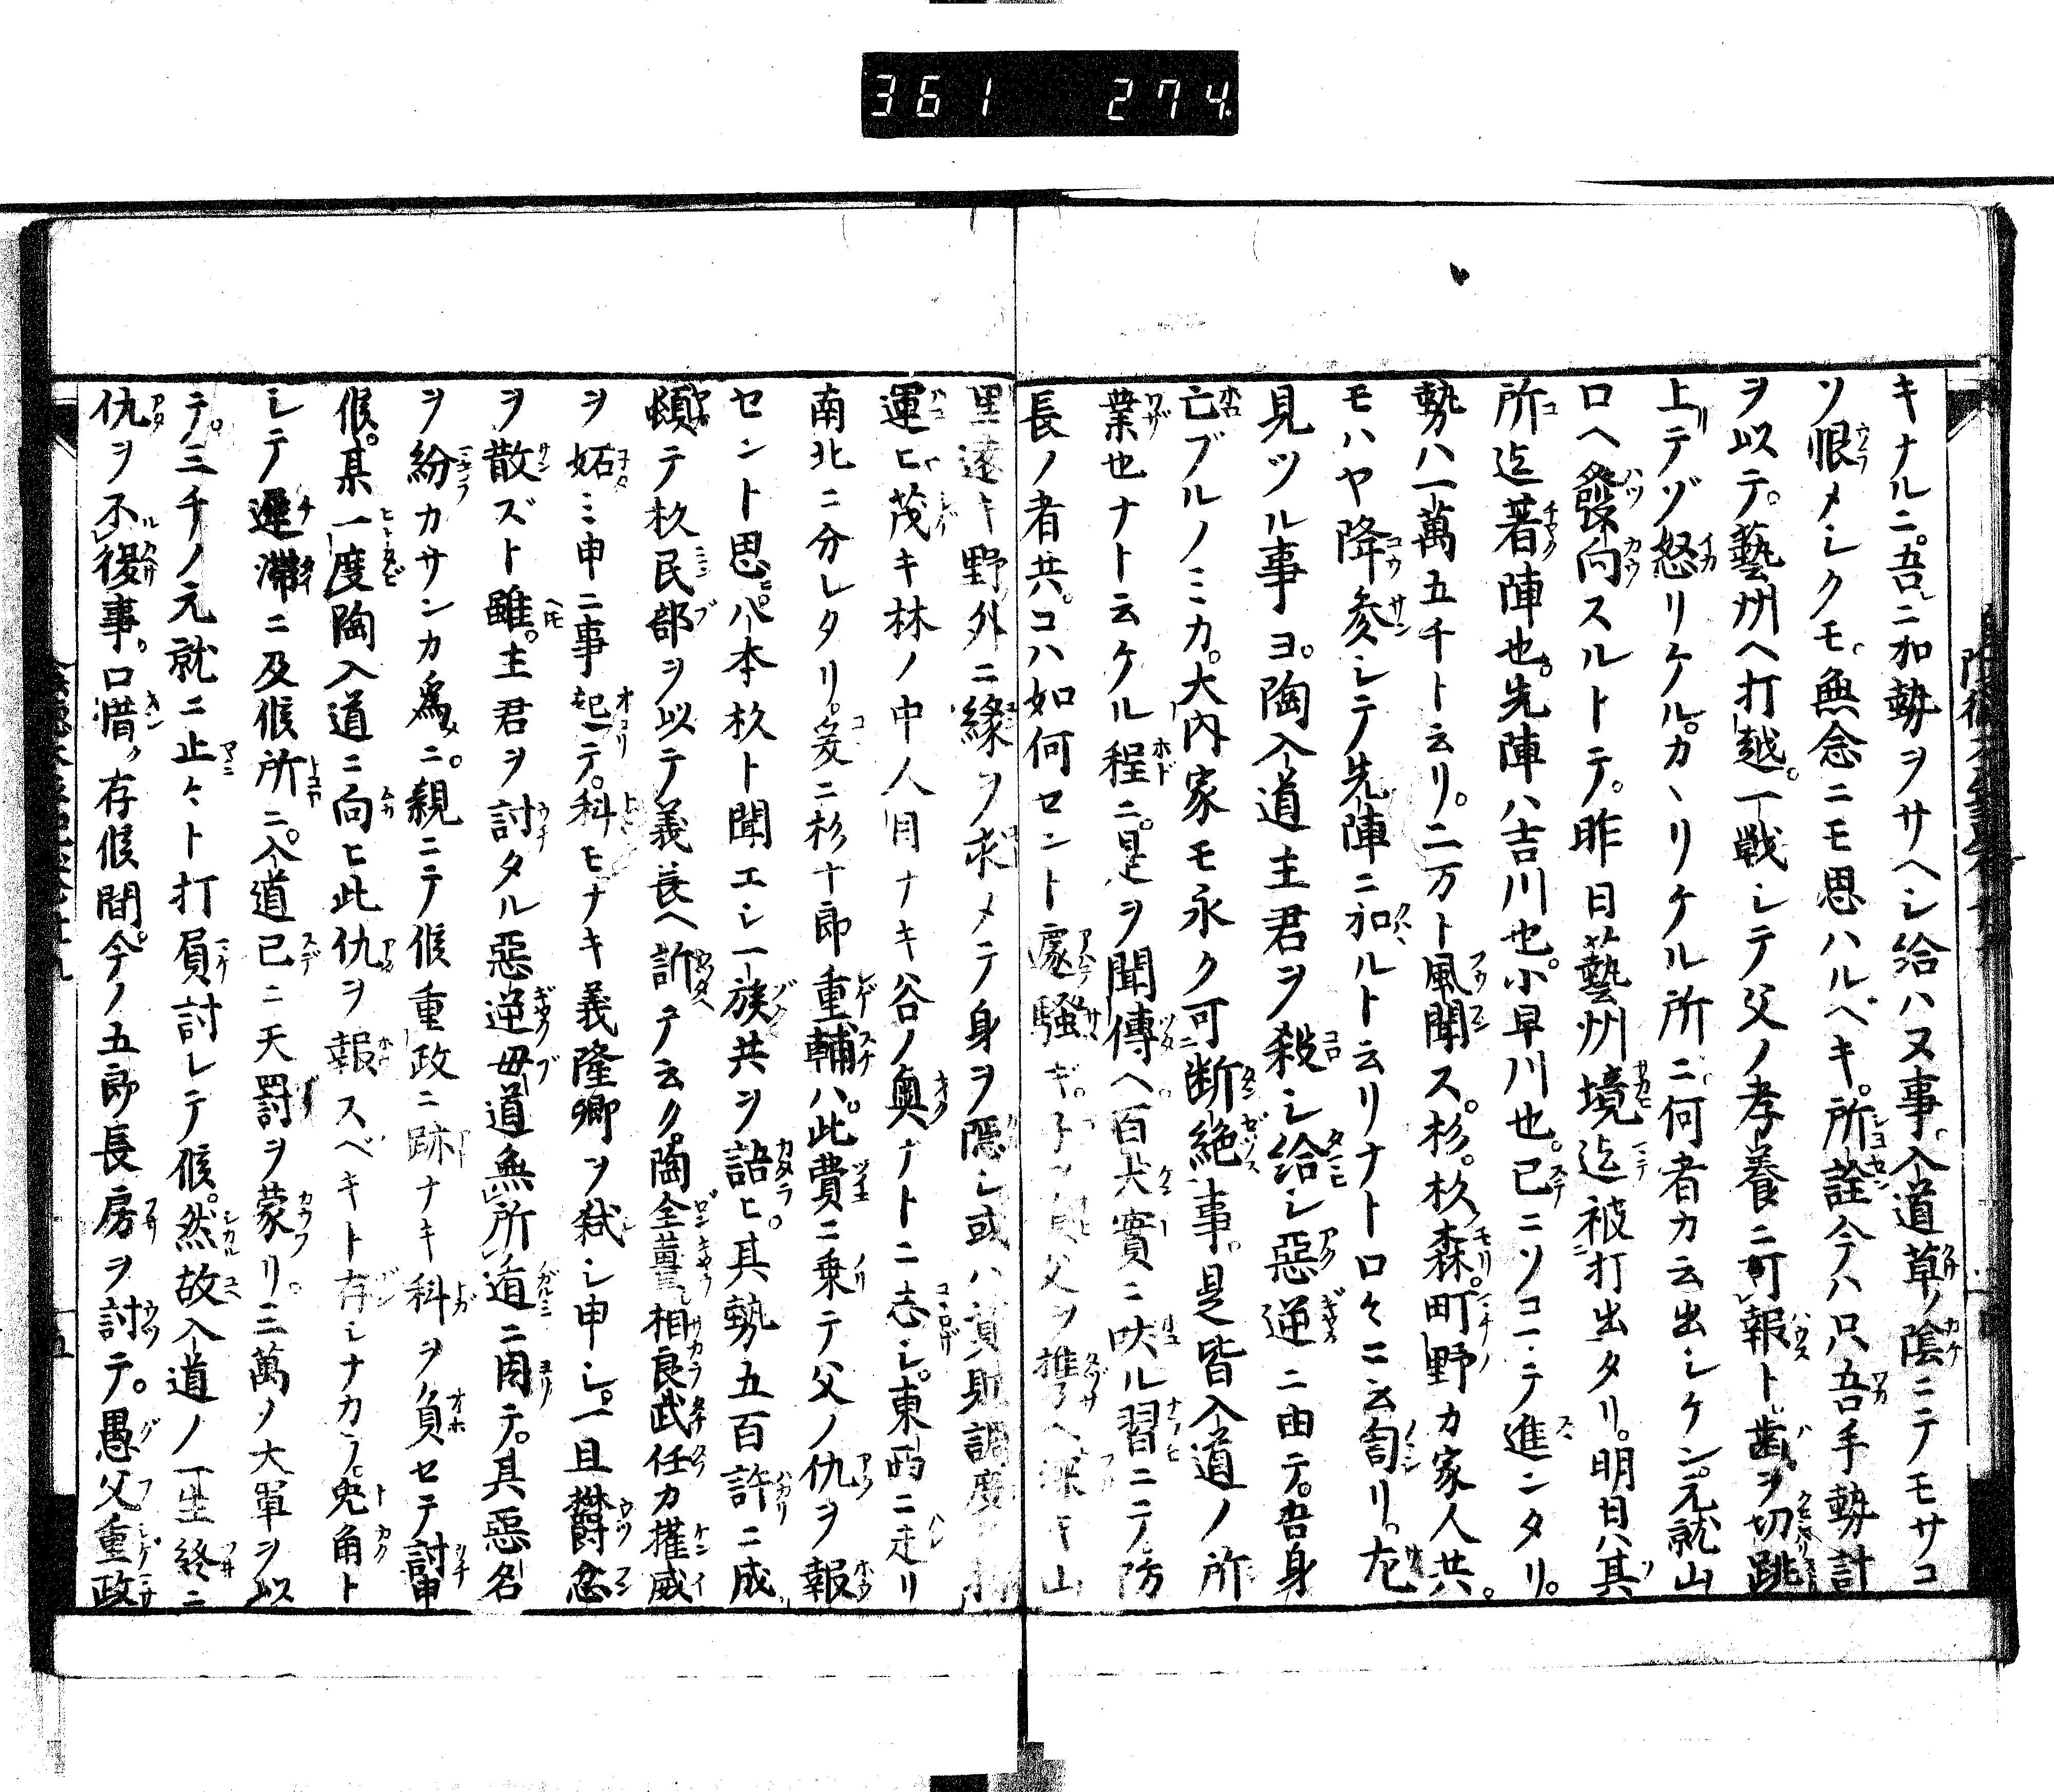 361 274
キナルニ。吾ニ和勢ヲサヘシ給ハヌ事。入道草ノ陰ニテモサコ
ソ恨メシクモ。無念ニモ思ハルベキ。所詮今ハ只吾手勢計
ヲ以テ。藝州ヘ打越。一戦シテ父ノ孝養ニ可報ト。歯ヲ切跳
上テゾ怒リケル。カヽリケル所ニ何者カ云出シケン。元就山
口ヘ發向スルトテ。昨日藝州境迄被打出タリ。明日ハ其
所迄著陣也。先陣ハ吉川也。小早川也。已ニソコニテ進ンタリ。
勢ハ一萬五千ト云リ。二万ト風聞ス。杉。杦森。町野カ家人共。
モハヤ降参シテ先陣ニ和ルト云リナト口々ニ云訇リ。
見ツル事ヨ。陶入道主君ヲ殺シ給シ惡逆ニ由テ。吾身
亡ブルノミカ。大内家モ永ク可断絶事。是皆入道ノ所
業也ナト云ケル程ニ。是ヲ聞傳ヘ百犬實ニ吠ル習ニテ防
長ノ者共。コハ如何セント遽騒ギ。父ヲ携ヘ深キ山
里遠キ野外ニ縁ヲ求メテ身ヲ隠シ或ハ資財調度
運ヒ茂キ林ノ中人目ナキ谷ノ奥ナトニ志シ。東西ニ走リ
南北ニ分レタリ。爰ニ杉十郎重輔ハ。此費ニ乗テ父ノ仇ヲ報
セント思ヒ。八本杦ト聞エシ一族共ヲ語ヒ。其勢五百許ニ成
頓テ杦民部ヲ以テ義長ヘ訴テ云ク陶全薑相良武任カ權威
ヲ妬ミ申ニ事起テ。科モナキ義隆卿ヲ弑シ申シ。一旦欝忿
ヲ散ズト雖。主君ヲ討タル惡逆毋道無所遁ニ因テ。其惡名
ヲ紛カサンカ為ニ。親ニテ候重政ニ跡ナキ科ヲ負セテ討申
候。某一度陶入道ニ向ヒ此仇ヲ報スベキト存シナカラ。兎角ト
シテ遲滞ニ及候所ニ。入道已ニ天罸ヲ蒙リ。三萬ノ大軍ヲ以
テ。三千ノ元就ニ止々ト打負討レテ候。然故入道ノ一生終ニ
仇ヲ不復事。口惜ク存候間。今ノ五郎長房ヲ討テ。愚父重政